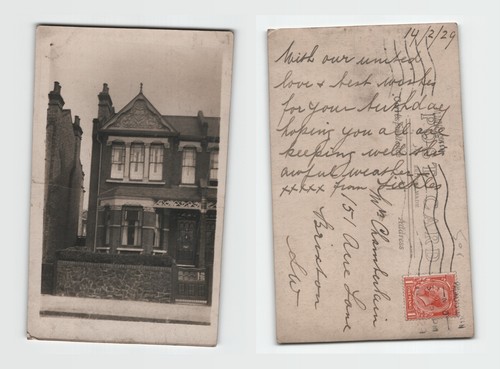 14/2/29
With our united
love & best wishes
for your birthday
hoping you all are
keeping well this
awful weather
xxxxx from Pickles
Mrs Chamberlain
151 Acre Lane
Brixton
S.W
Address